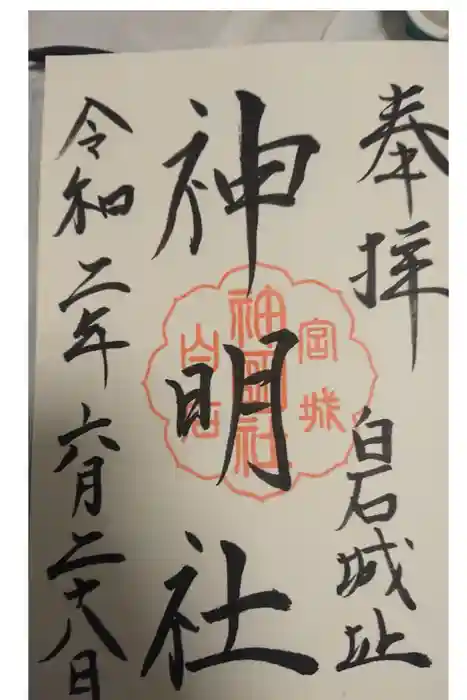 奉拝 白石城址
神明社
宮城
神明社
白石
令和二年六月二十八日